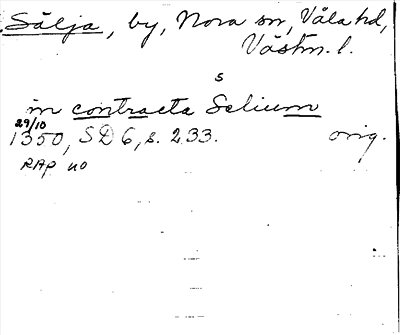 Sälja, by, Nora sn, Våla hd,
Västm. l.
s
in contracta Selium
29/10
1350, SD 6, s. 233. orig.
RAp no